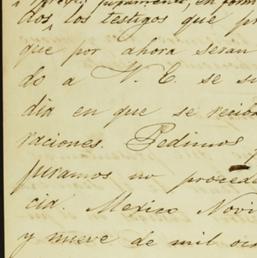 juramento, en form
dos, los testigos que pr
que por ahora seran
do a V. E. se su
dia en que se reciba
raciones. Pedimos
juramos no procede
cia. Mexico Novi
y nueve de mil oc